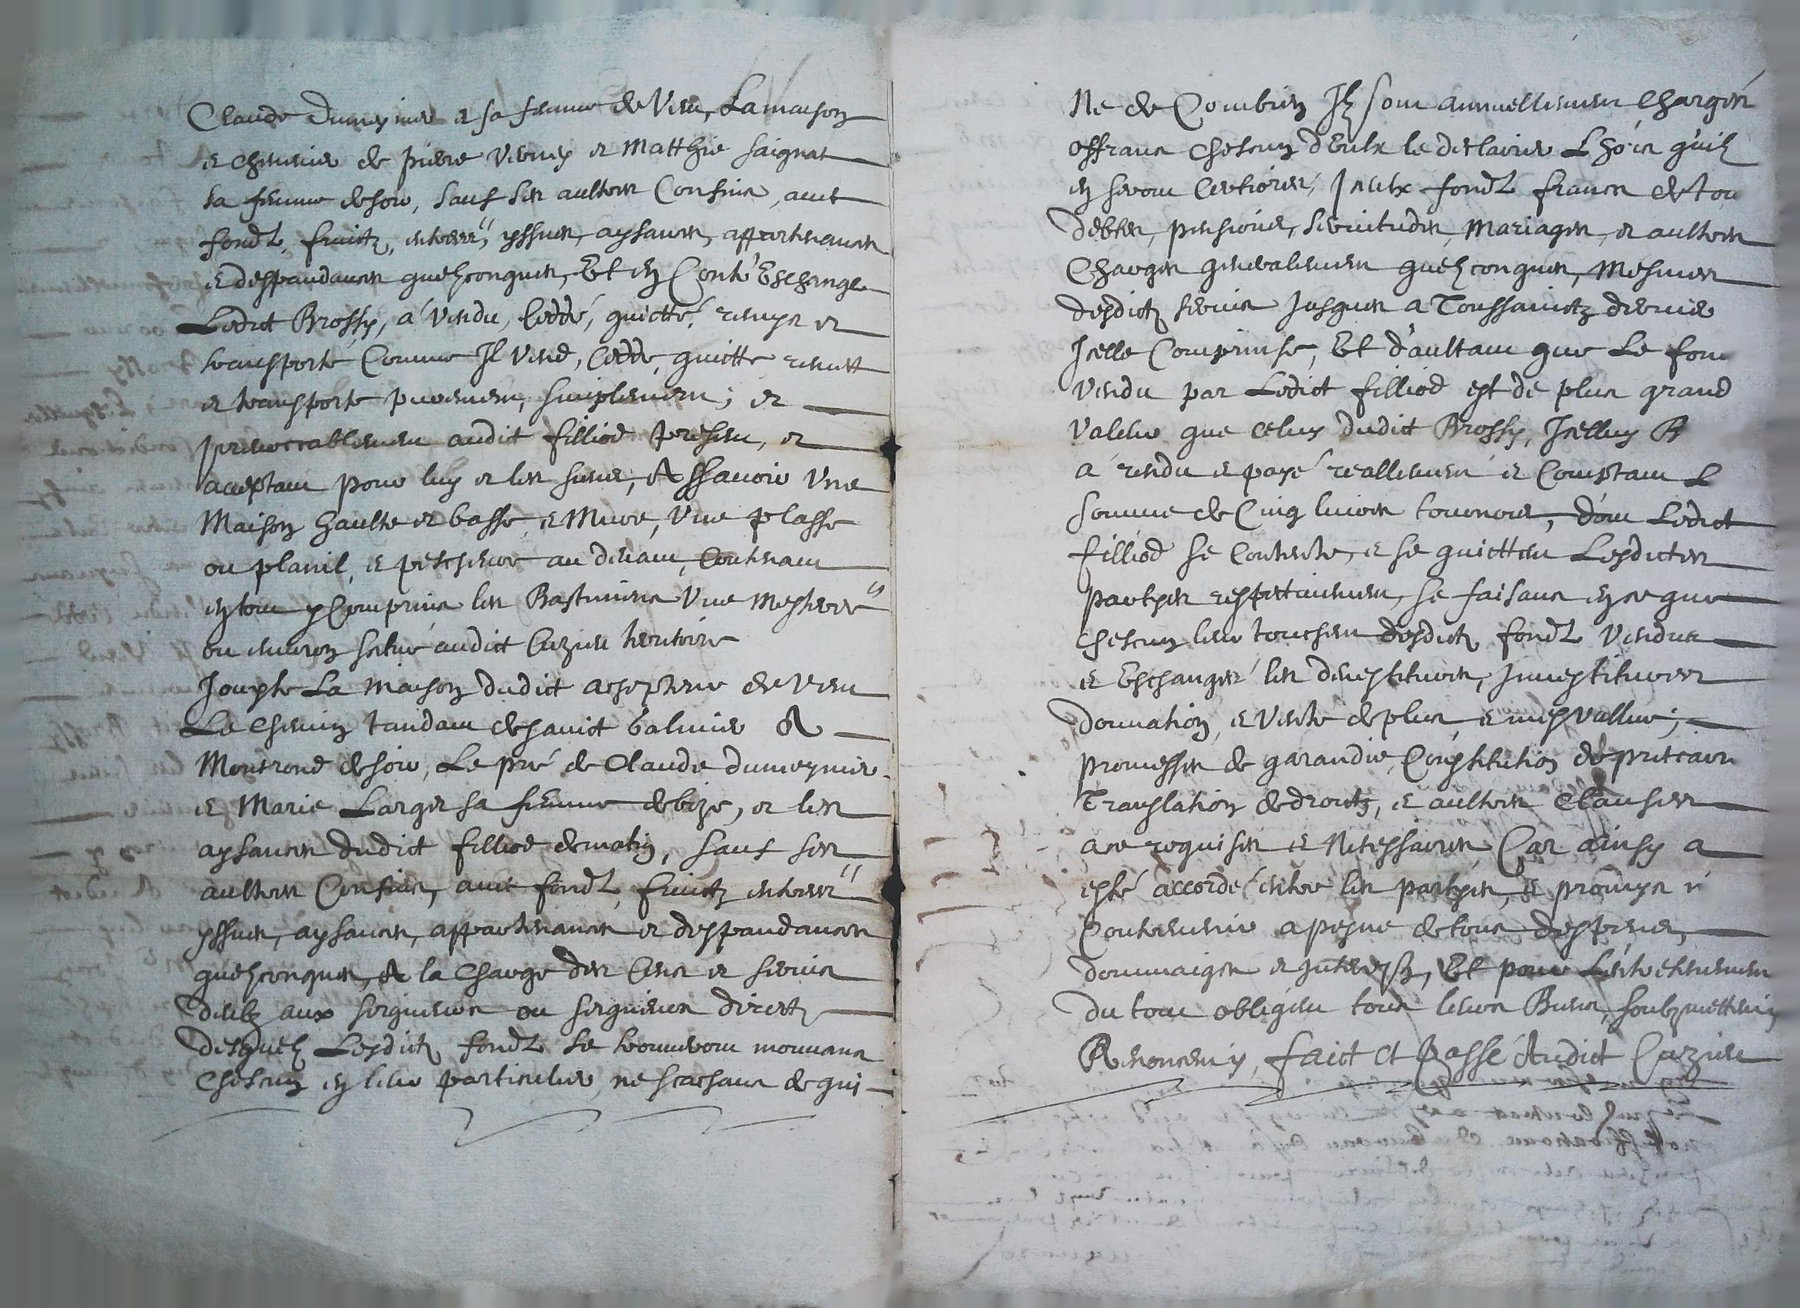 Claude Dumeynier et sa femme de vent, La maison
et chenevier de pierre verney et Matthie saignat
sa femme de soir, sauf ses aultres Confins, avec
fondz, fruictz, entrees, yssues, aysances, appartenances
et deppandances quelzconques, Et en Contr'Eschange
Ledict Brossy, á vendu, Ceddé, quictté, remys et
transporté Comme Il vend, Cedde, quitte remett
et transporte purement, simplement, et
jrrevoccablement audict filliod present, et
acceptant pour luy et les siens, Assavoir Une
Maison haulte et basse, et Mure, Une plasse
ou planil, et au devant, Contenant
en tout y Comprins les Bastimens Une
ou environ scitué audict Cuzieu territoire
Jouxte La maison dudict de vent
Le Chemin tandant de sainct Galmier A
Montrond de soir, Le pré de Claude dumeynier
et Marie Larger sa femme de bize, et les
aysances dudict filliod de matin, sauf ses
aultres Confins, avec fondz, fruictz entrees
yssues, aysances, appartenances et deppandances
quelzconques, A la Charge des Cens et servis
deubz aux seigneurs ou seigneurs directz
desquelz Lesdictz fondz se trouveront mouvans
Chescun en leur particulier, ne scachans de qui
Ne de Combien Ilz sont annuellement Chargés
offrans Chescun d'eulx le declairer L'hors qu'ilz
en seront Certiorés, Iceulx fondz francs de tou
debtes, pensions, servitudes, Mariages, et aultres
Charges generalement quelzconques, Mesmes
desdictz servis Jusques a Toussainctz dernier
Icelle Comprinse, Et d'aultant que Le fon
vendu par Ledict filliod est de plus grand
valeur que celuy dudict Brossy, Icelluy B
á rendu et payé reallement et Comptant L
somme de Cinq livres tournois, dont Ledict
filliod se Contente, et se quictent Lesdictes
partyes respectivement, se faisans en ce que
Chescun leur touchent desdictz fondz vendus
et Eschangés les devestitures, Jnvestitures
donnation, et vente de plus, et
promesses de garandie, Constitution de precaire
Translation de droictz, et aultres Clauses
a ce requises et Necessaires, Car ainsy a
esté accordé entre les partyes, et promys
a peyne de tous despens,
dommaiges et Et pour L'entretenement
du tout obligent tous leurs Biens, soubzmettent
Renoncent, faict et Passé Audict Cuzieu